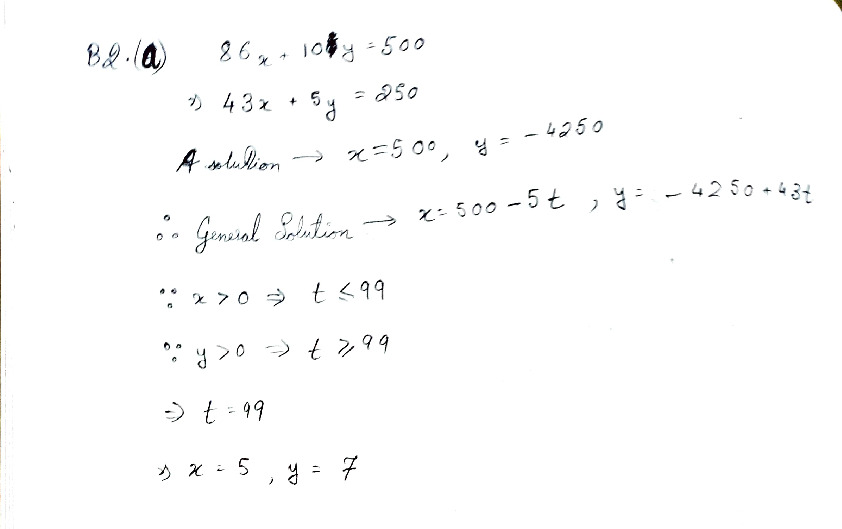 B2.(a) 86x + 10y = 500
⇒ 43x + 5y = 250
A solution → x = 500, y = - 4250
∴ General Solution → x = 500 - 5t , y = - 4250 + 43t
∵ x > 0 ⇒ t ≤ 99
∵ y > 0 ⇒ t ≥ 99
⇒ t = 99
⇒ x = 5 , y = 7